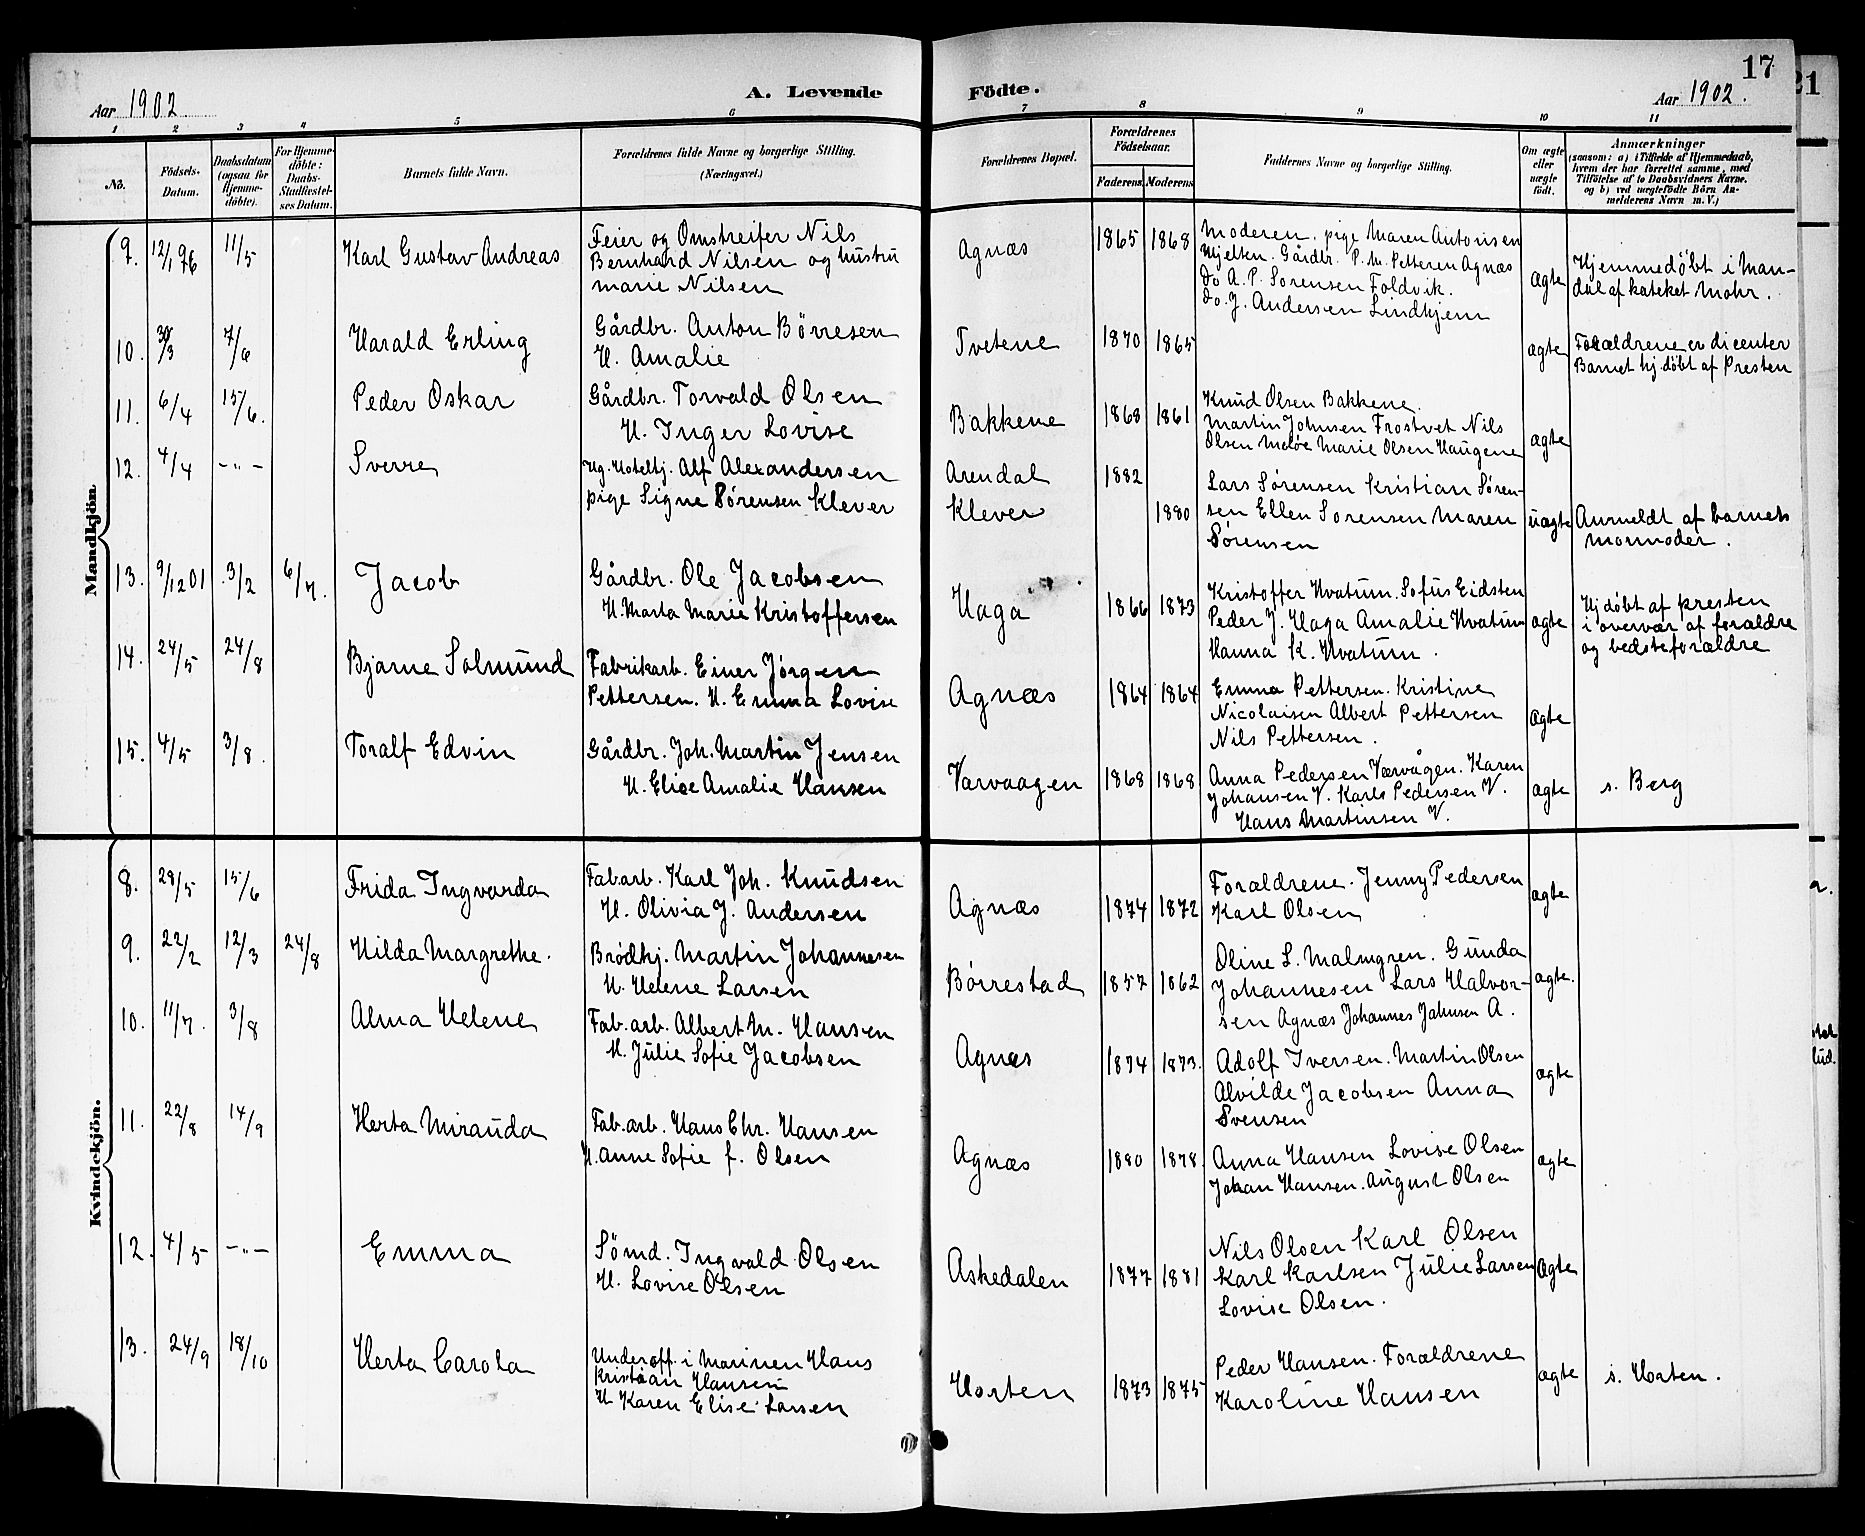 17
21
Aar 1902
A. Levende Födte.
Aar 1902.
1 2 3 4 5 6 7 8 9 10 11
No.
Födsels-Datum.
Daabsdatum (ogsaa for Hjemme-döbte).
For Hjemme-döbte: Daabs-Stadfæstel-ses Datum.
Barnets fulde Navn.
Forældrenes fulde Navne og borgerlige Stilling.
(Næringsvei.)
Forældrenes Bopæl.
Forældrenes Födselsaar.
Faderens. Moderens.
Faddernes Navne og borgerlige Stilling.
Om ægte eller uægte födt.
Anmærkninger
(saasom: a) i Tilfælde af Hjemmedaab,
hvem der har forrettet samme, med
Tilföielse af to Daabsvidners Navne,
og b) ved uægtefödte Börn An-
melderens Navn m. V.)
Mandkjön.
9. 12/1 96 11/5 Karl Gustav Andreas
Feier og Omstreifer Nils
Bernhard Nilsen og hustru
Marie Nilsen
Agnæs 1865 1868
Moderen. pige Maren Antonisen
Hjelten. Gårdbr. P. M. Petteren Agnæs
do A. P. Sorensen Foldvik.
do. J. Andersen Lindhjem
ægte
Hjemmedöbt i Man-
dal af kateket Mohr.
10. 30/3 7/6 Harald Erling
Gårdbr. Anton Börresen
H. Amalie
Tvetene 1870 1865 ægte
Forældrene er dicenter
Barnet hj. döbt af Presten
11. 6/4 15/6. Peder Oskar
Gårdbr. Torvald Olsen
H. Inger Lovise
Bakkene 1868 1861
Knud Olsen Bakkene.
Martin Johnsen Frostvet Nils
Olsen Meløe Marie Olsen Haugene
ægte
12. 4/4 -"- Sverre
Ug. Hotelhj. Alf Alexandersen
pige Signe Sörensen Klever
Arendal 1882
Klever 1880
Lars Sörensen Kristian Sören-
sen Ellen Sorensen Maren
Sörensen
uægte
Anmeldt af barnets
mormoder.
13. 9/12 01 3/2 6/7. Jacob
Gårdbr. Ole Jacobsen
H. Marta Marie Kristoffersen
Haga 1866 1873
Kristoffer Hvatum. Sofus Eidsten
Peder J. Haga Amalie Hvatum
Hanna K. Hvatum.
ægte
Hj döbt af presten
i overvær af foraldre
og bedsteforældre
14. 24/5 24/8 Bjarne Solmund
Fabrikarb. Einer Jörgen
Pettersen. H. Emma Lovise
Agnæs 1864 1864
Emma Pettersen. Kristine
Nicolaisen Albert Pettersen
Nils Pettersen.
ægte
15. 4/5 3/8. Toralf Edvin
Gårdbr. Joh. Martin Jensen
H. Elise Amalie Hansen
Varvaagen 1868 1868
Anna Pedersen Værvågen. Karen
Johansen V. Karls Pedersen V.
Hans Martinsen V.
ægte s. Berg
Kvindekjön.
8. 28/5 15/6 Frida Ingvarda
Fab.arb. Karl Joh. Knudsen
H. Olivia J. Andersen
Agnæs 1874 1872
Foraldrene. Jenny Pedersen
Karl Olsen
ægte
9. 22/2 12/3 24/8 Hilda Margrethe.
Brödhj. Martin Johannesen
H. Helene Larsen
Börrestad 1857 1862
Oline L. Malmgren. Gunda
Johannesen Lars Halvor-
sen Agnæs Johannes Jahnsen A.
ægte.
10. 11/7. 3/8 Alma Helene
Fab.arb. Albert M. Hansen
H. Julie Sofie Jacobsen
Agnæs 1874 1873.
Adolf Iversen. Martin Olsen
Alvilde Jacobsen Anna
Svensen
ægte
11. 22/8 14/9 Herta Miranda
Fab.arb. Hans Chr. Hansen
H. Anne Sofie f. Olsen
Agnæs 1880 1878.
Anna Hansen Lovise Olsen
Johan Hansen. August Olsen
ægte
12. 4/5 -"- Emma
Sömd. Ingvald Olsen
H. Lovise Olsen
Askedalen 1877 1881
Nils Olsen Karl Olsen
Karl Karlsen Julie Larsen
Lovise Olsen.
ægte
13. 24/9 18/10 Herta Carola
Underoff. i Marinen Hans
Kristian Hansen
H Karen Elise Larsen
Horten 1873 1875
Peder Hansen. Foraldrene
Karoline Hansen
ægte s. Horten.